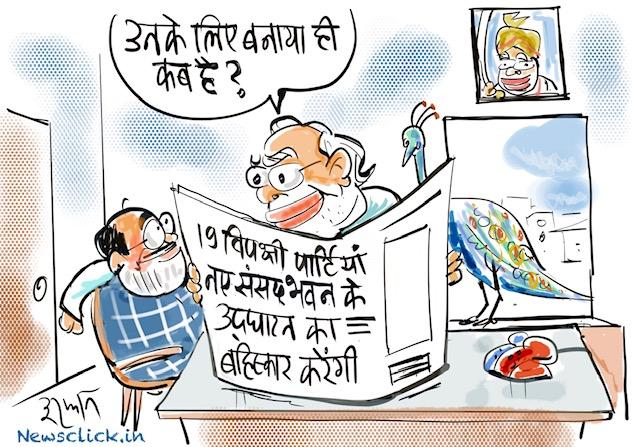 उनके लिए बनाया ही
कब है?
19 विपक्षी पार्टियां
नए संसद भवन के
उद्घाटन का
बहिस्कार करेंगी
Newsclick.in